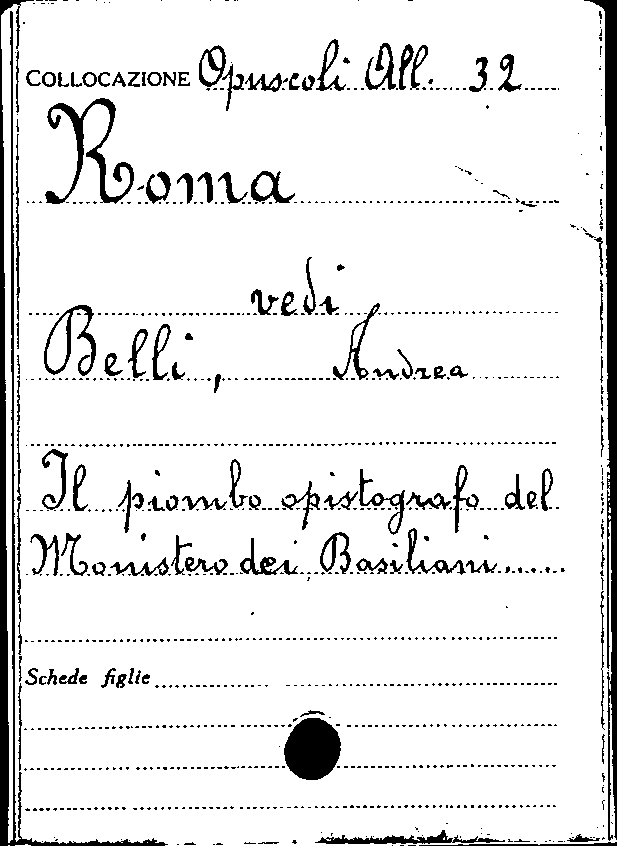 COLLOCAZIONE Opuscoli All. 32
Roma
vedi
Belli, Andrea
Il piombo opistografo del
Monistero dei Basiliani......
Schede figlie